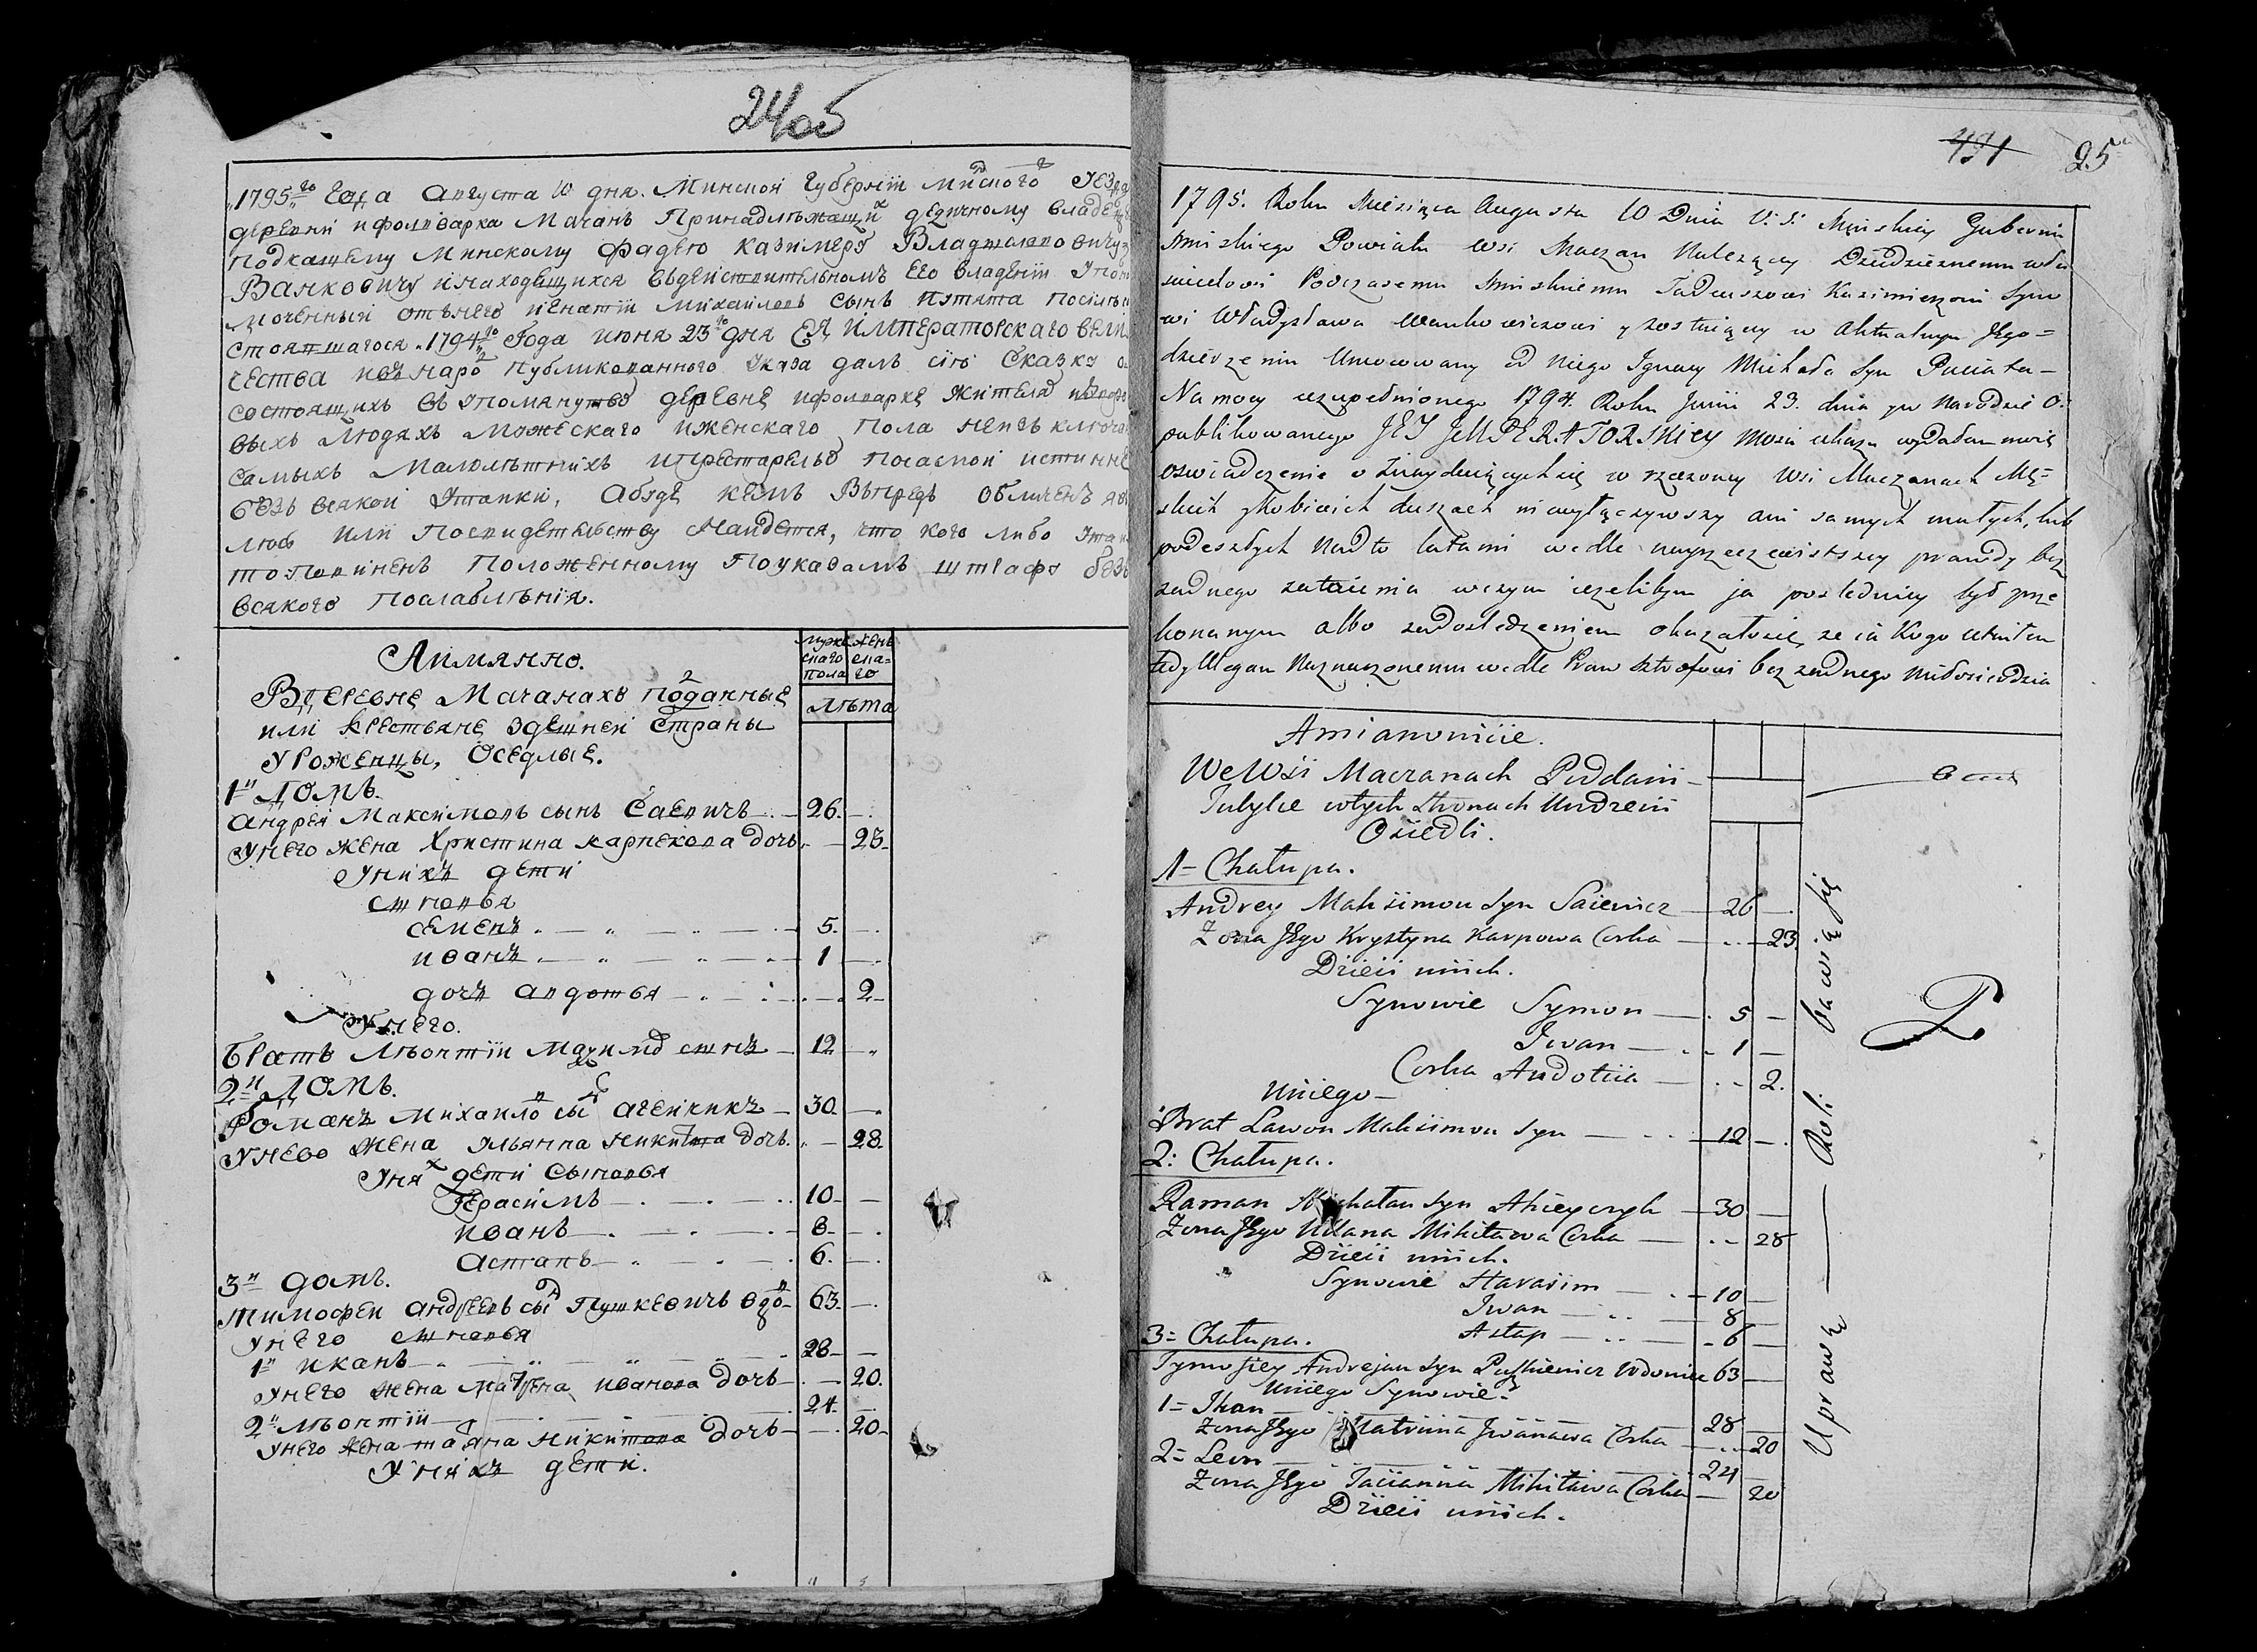 24об
1795го Года Августа 10 дня. Минской Губернiи Минского
деревни ифолварка Мачанъ Принадлѣжащих дедичному
Подкащему Минскому Фадею Казимеру
Ванковичу инаходещихся въдействительномъ Его владенiи
моченный отънего Игнатiй Михайловъ сынъ Путята
стоявшагося 1794го Года июня 23го дня ЕЯ ИМПЕРАТОРСКАГО
чества Публикованного Указа далъ сiю Сказку
состоящихъ въ деревне ифолварке
выхъ Людяхъ Можескаго иженскаго Пола
самыхъ Малолѣтнихъ
безъ всякой Утайки, Абуде кемъ Впредь обличенъ
люсь или Посвидетельству Найдется, что кого либо
то Повиненъ Положенному Поуказамъ штрафу
всякого Послаблѣнiя.
Аимянно.
Вдеревне Мачанахъ Поданные
или крестьяне здешней Страны
Уроженцы, Оседлые.
муже
скаго
пола
жень
ска=
го
лѣта
1й Домъ.
Андрей Максимовъ сынъ Саевичъ 26.
Унего жена Христина карпекова дочь 23
Унихъ дети
сыновья
семенъ 5.
иванъ 1
дочъ авдотья 2
Унего.
братъ Лѣонтiй сынъ 12
2й Домъ.
Романъ Михайлов 30.
Унево жена ульянна никитова дочь. 28
Уних дети Сыновья
Герасимъ 10
иванъ 8
астапъ 6.
3й домъ.
тимофей андреевъ сын Пушкевичъ вдов 63.
Унего сыновья
1й иканъ 28
Унего жена матрена иванова дочь 20.
2й лѣонтiй 24.
Унего жена татяна никитова дочь 20
Унихъ дети.
491 25
1795. Roku Miesiąca Augusta 10 Dnia V: S: Mińskiey Gubernii
Minskiego Powiatu wsi Maczan Należący Dziedzicznemu
Podczasemu Minskiemu Tadeuszowi Kazimierzowi Syno
wi Władysława Wankowiczowi w Aktualnym Jego=
dzierzeniu Umocowany od niego Ignacy Michała Syn Puciata
Na mocy uzupełnionego 1794. Roku Junii 23. dnia w Narodzie O:
publikowanego JEY JMPERATORSKIEY Mości ukazu wydałem
oswiadczenie o znayduiących się w rzeczoney Wsi Maczanach Mę=
skich y kobicich duszach niewyłączywszy ani samych małych, lub
podeszłych Nadto latami wedle nayrzeczewistszey prawdy bez
żadnego zataienia wczym ieżelibym ja posledniey był prze
konanym albo zadosledzeniem okazałosię, że ia kogo utaiłem
tedy Ulegam Naznaczonemu wedle Praw Sztrofowi bez żadnego miłosierdzia
Amianowiiie.
We Wsii Maczanach Poddani
Tutylie wtych stronach Urodzeni
Osiedli.
1= Chałupa.
Andrey Maksimow Syn Saiewicz 26
Zona Jego Krystyna Karpowa Corka 23
Dzieii uniich.
Synowie Symon 5
Jwan 1
Corka Audotiia 2.
Uniego
Brat Lawon Maksimow Syn 12
2: Chałupa.
Raman Michałau Syn 30
Zona Jego Ullana Mikitawa Corka 28
Dzieii uniich.
Synowie Harasim 10
Jwan 8
Astap 6
3= Chałupa.
Tymofiey Andrejau Syn Puszkiewicz Wdowiec 63
Uniego Synowie.
1= Jkan 28
Zona Jego Matruna Jwanawa Corka 20
2= Leon 24
Zona Jego Taciianna Mikitawa Corka 20
Dzieii uniich.
Uprawą Roli bawią się